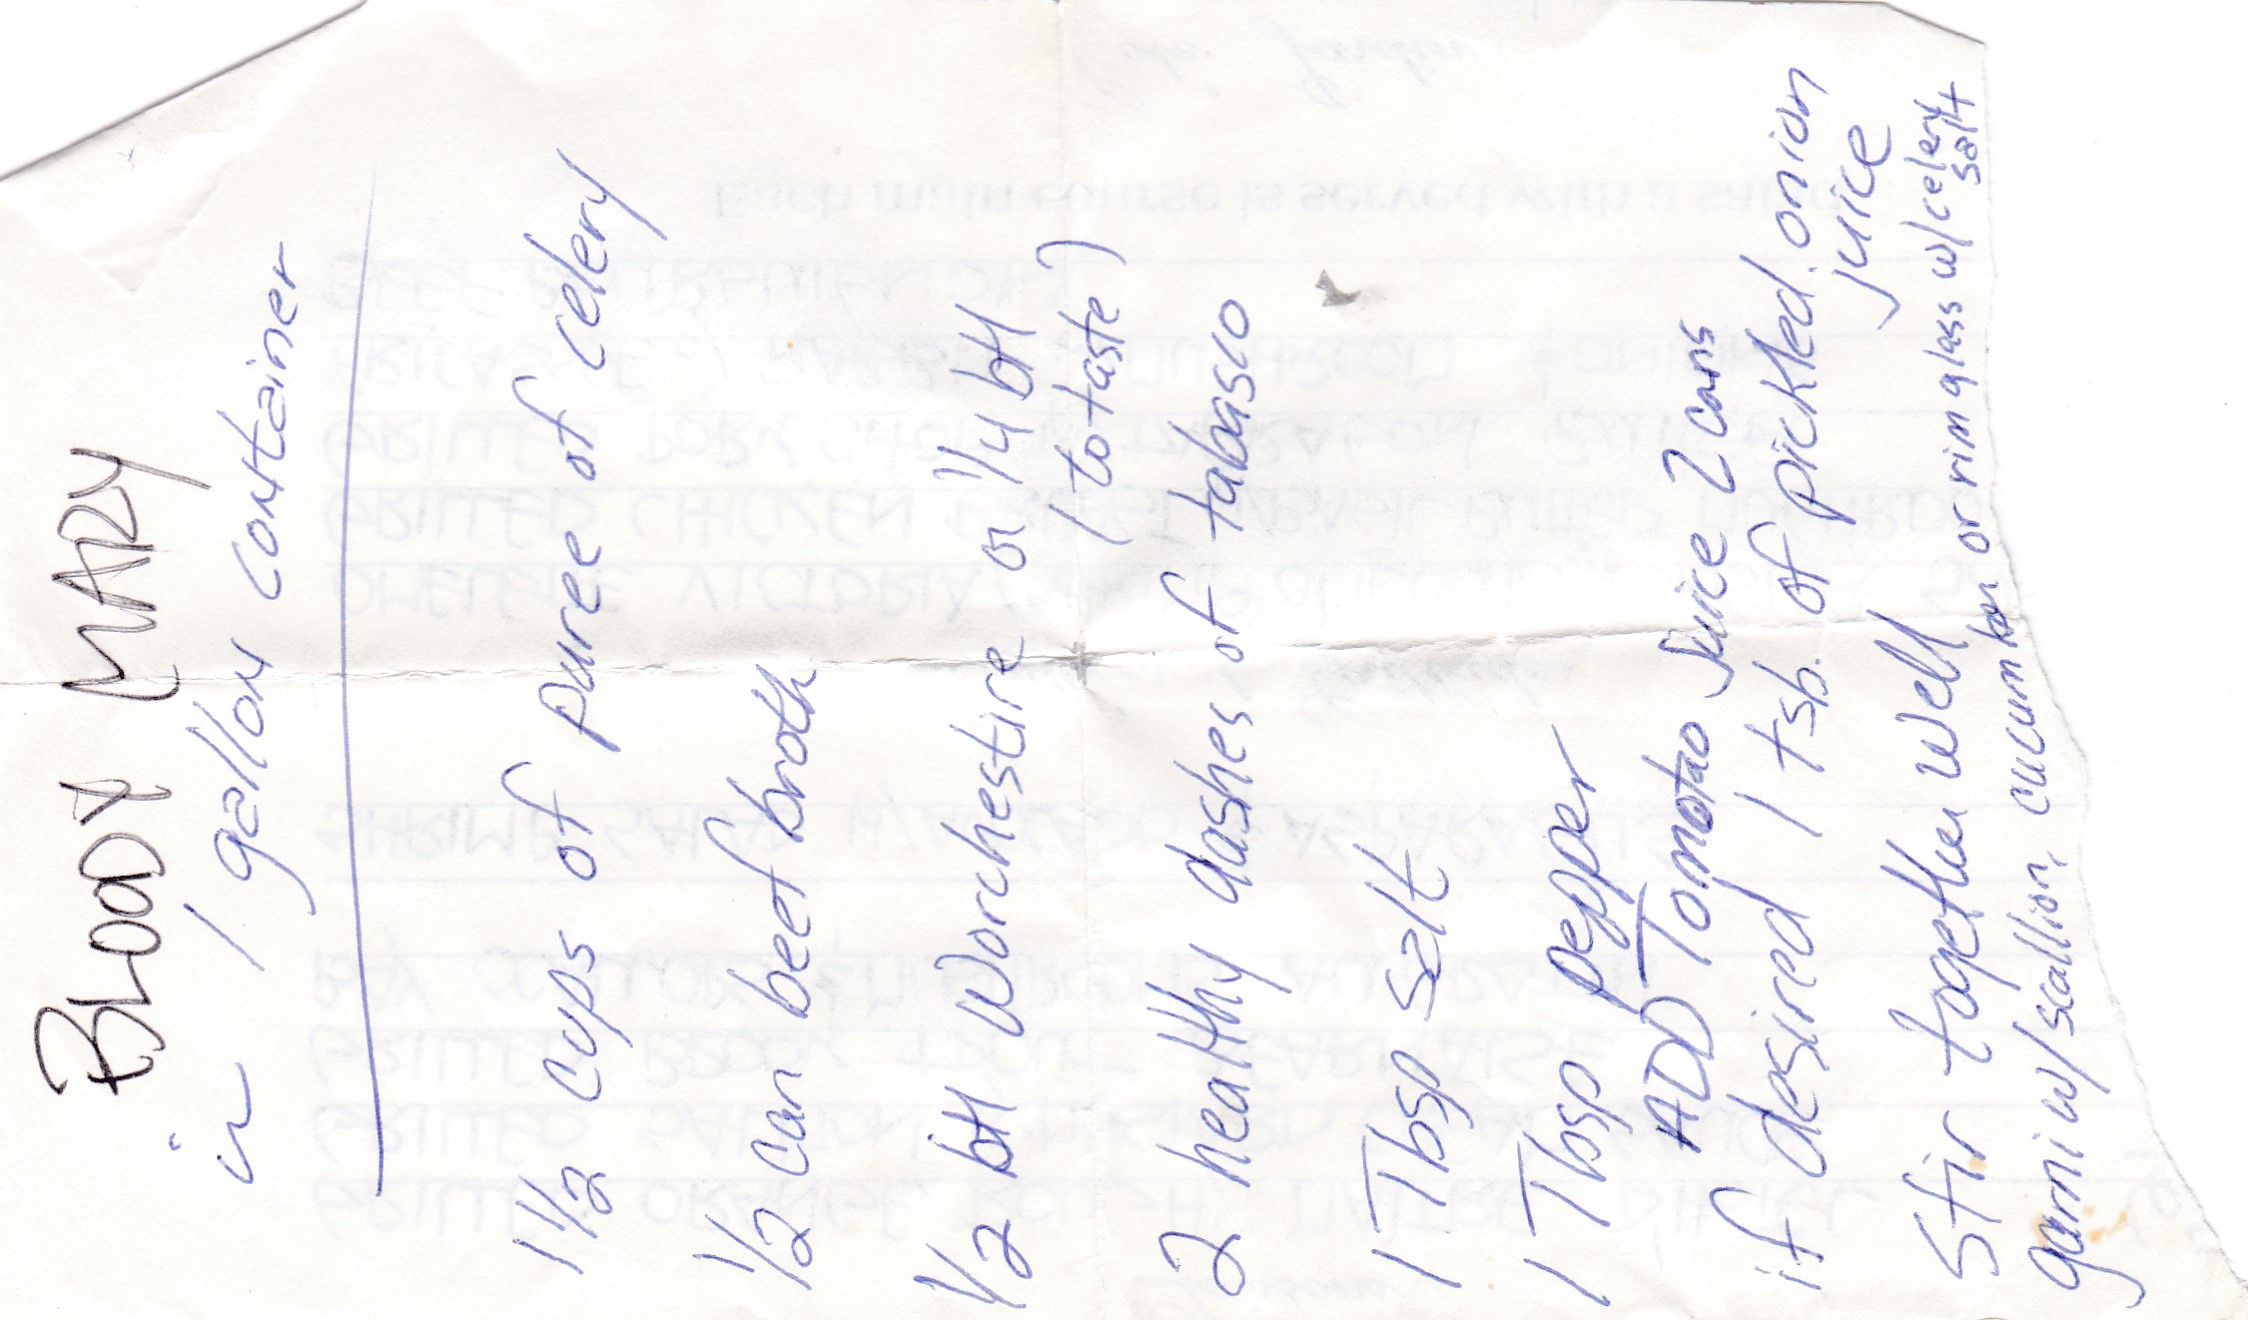 BLOODY MARY
in 1 gallon container
1 1/2 cups of puree of celery
1/2 can beef broth
1/2 btl Worchestire or 1/4 btl
(to taste)
2 healthy dashes of tabasco
1 Tbsp salt
1 Tbsp pepper
ADD Tomotao Juice 2 cans
if desired 1 tsb. of pickled onion
juice
Stir together well
garni w/ scallion, cucumber or rim glass w/ celery
salt